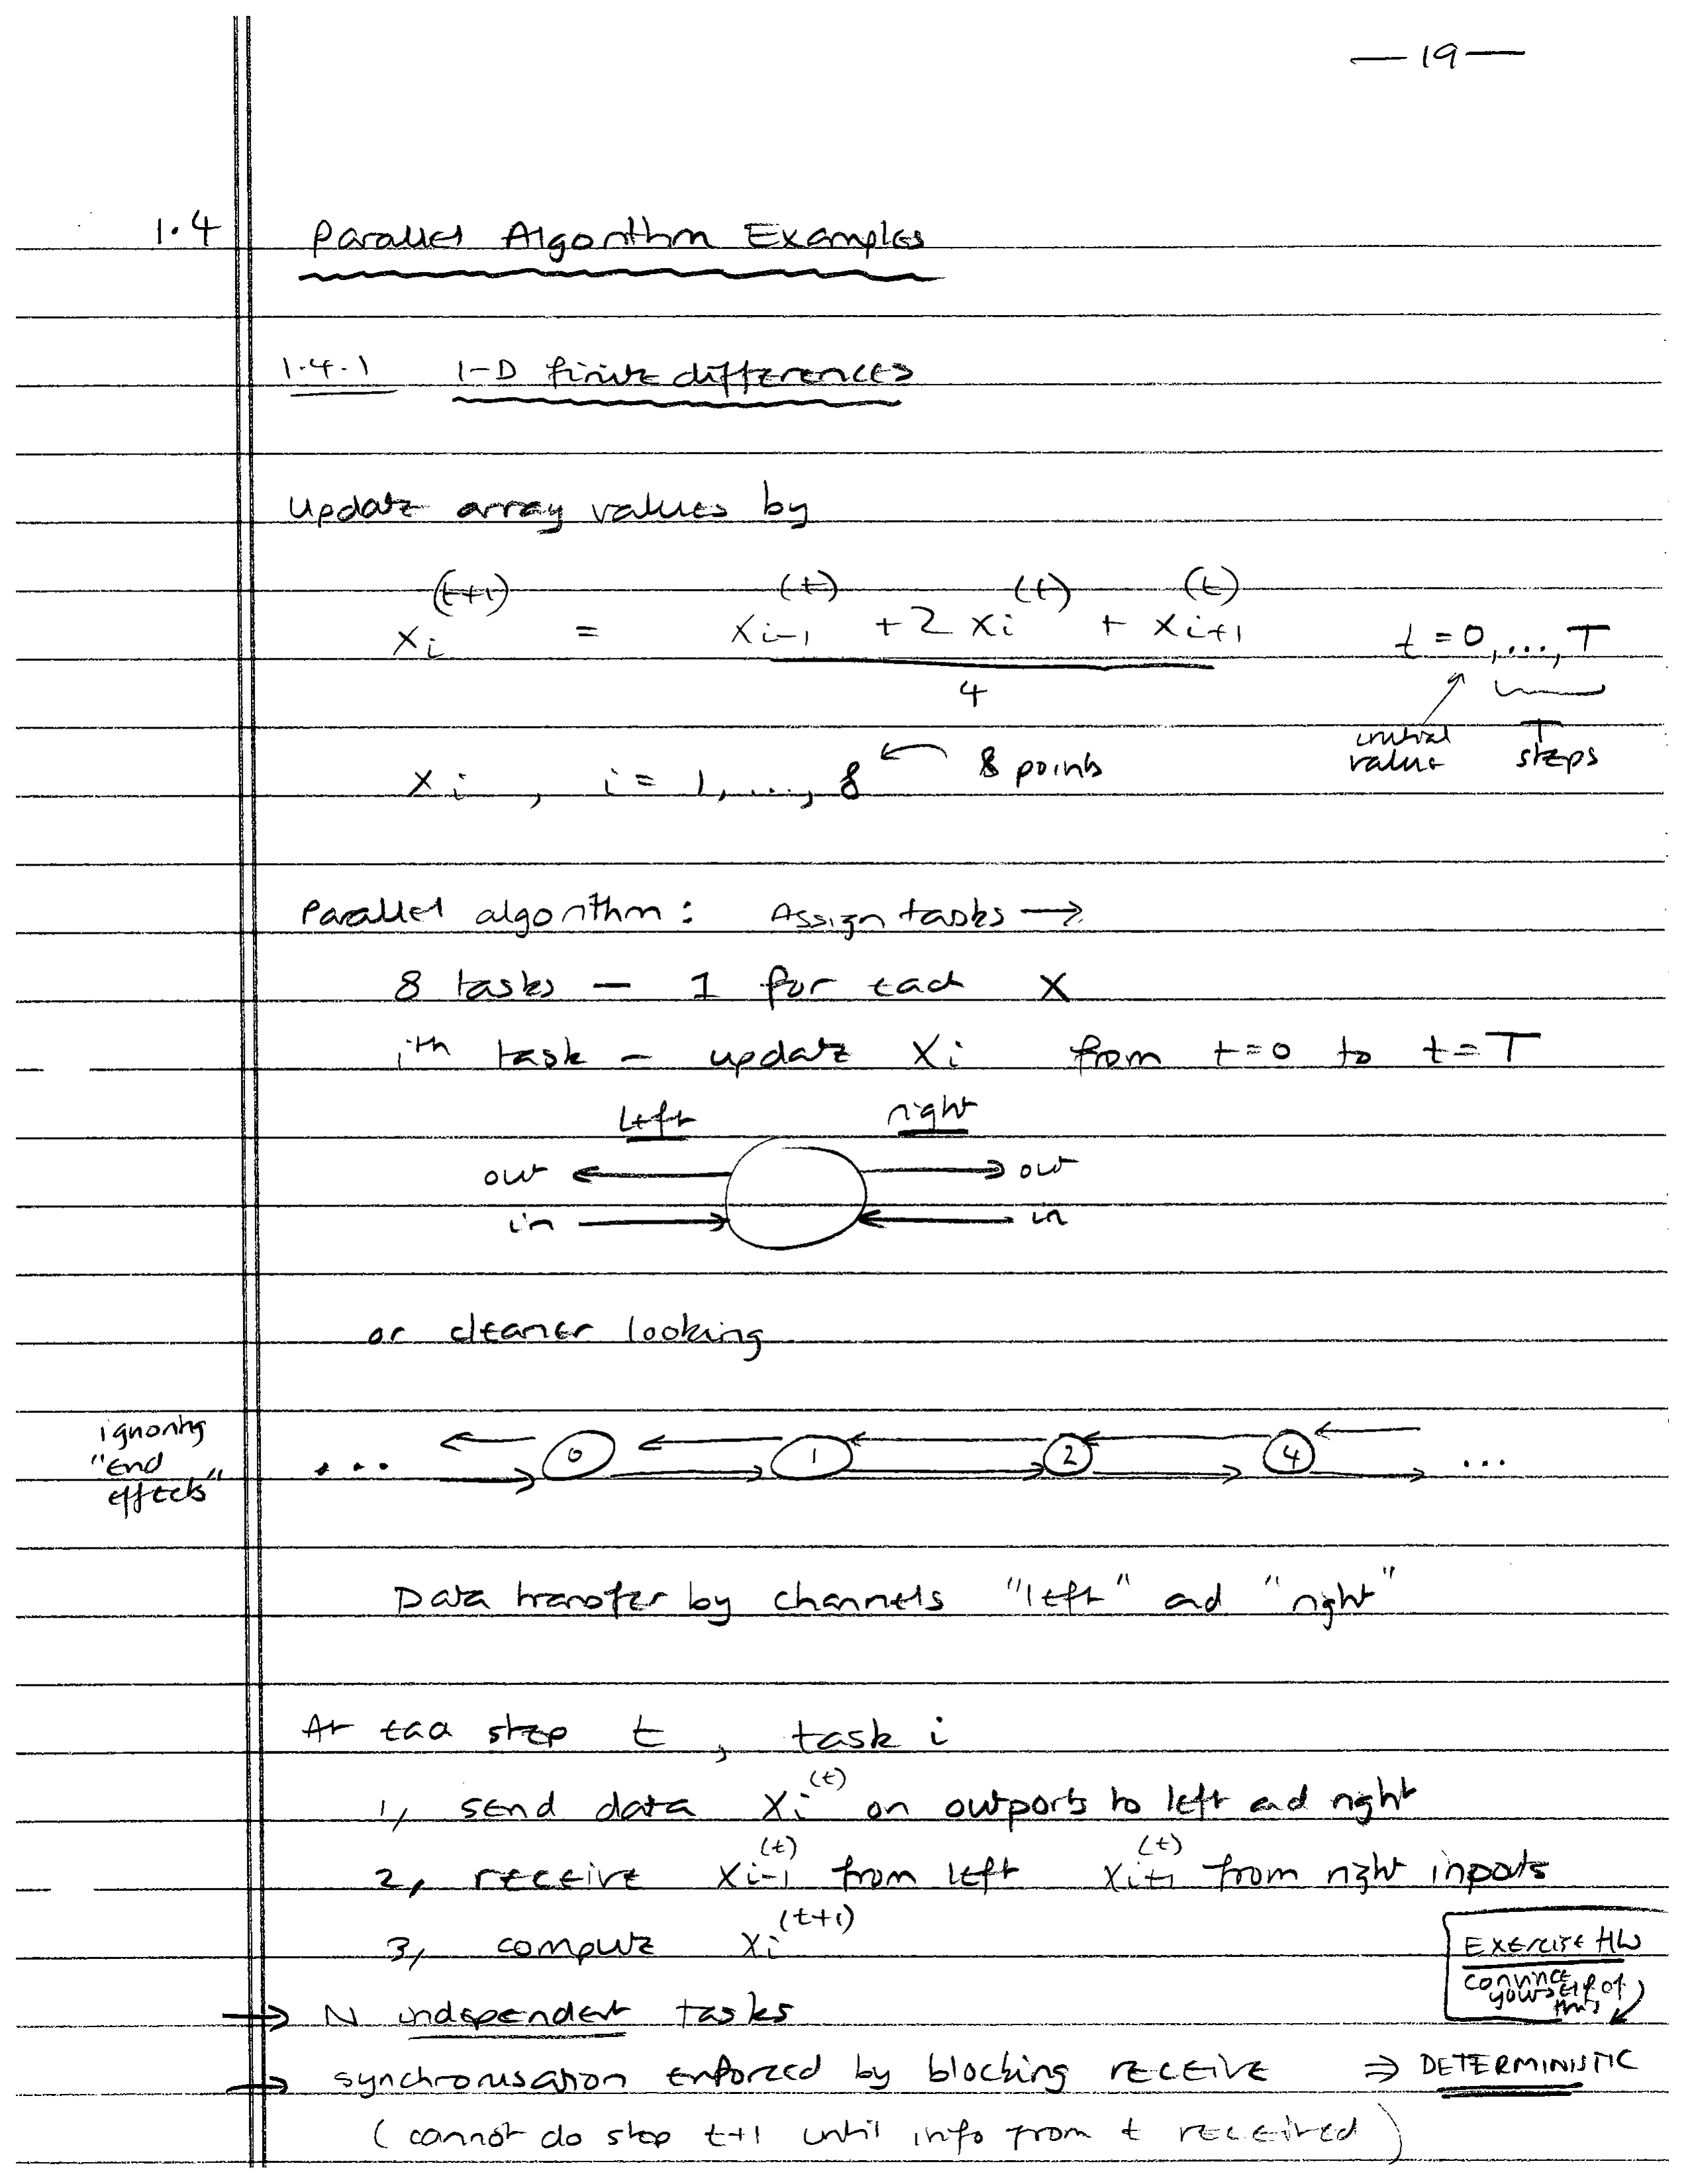 — 19 —
1.4 Parallel Algorithm Examples
1.4.1 1-D finite differences
Update array values by
x_i^(t+1) = (x_{i-1}^(t) + 2 x_i^(t) + x_{i+1}^(t)) / 4 t = 0, ..., T
initial value T steps
x_i , i = 1, ..., 8 ← 8 points
Parallel algorithm : Assign tasks →
8 tasks — 1 for each X
i^th task – update x_i from t=0 to t=T
left right
out out
in in
or cleaner looking
ignoring "end effects" ... 0 1 2 4 ...
Data transfer by channels "left" and "right"
At each step t , task i
1, send data x_i^(t) on outports to left and right
2, receive x_{i-1}^(t) from left x_{i+1}^(t) from right inports
3, compute x_i^(t+1)
Exercise HW
convince yourself of this
→ N independent tasks
→ synchronisation enforced by blocking receive ⇒ DETERMINISTIC
(cannot do step t+1 until info from t received)